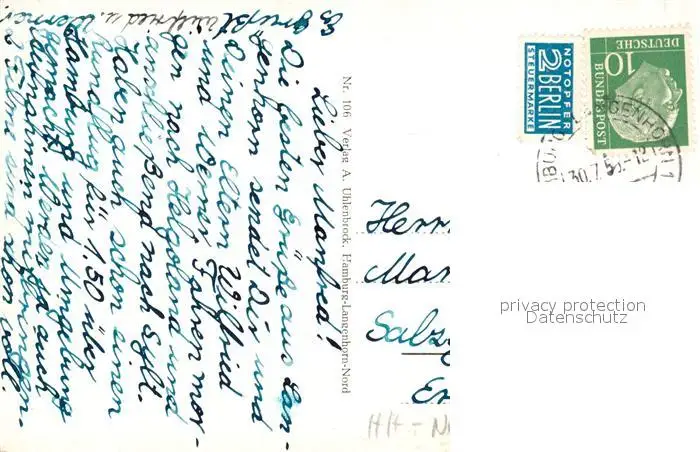 Lieber Manfred!
Die besten Grüße aus Lan-
genhorn sendet Dir und
Deinen Eltern Wilfried
und Werner. Fahren mor-
gen nach Helgoland und
anschließend nach Sylt.
Haben auch schon einen
Rundflug für 1.50 über
Hamburg und Umgebung
gemacht. Werden ja auch
Aufnahmen
2 Filme sind schon voll.
Es grüßt Wilfried u. Werner
Nr. 106 Verlag A. Uhlenbrock, Hamburg-Langenhorn-Nord
NOTOPFER
2 BERLIN
STEUERMARKE
DEUTSCHE
BUNDESPOST
10
BURG-LANGENHORN 1
30.7.5
-12
Herrn
Man
Salzg
HH-N
privacy protection
Datenschutz